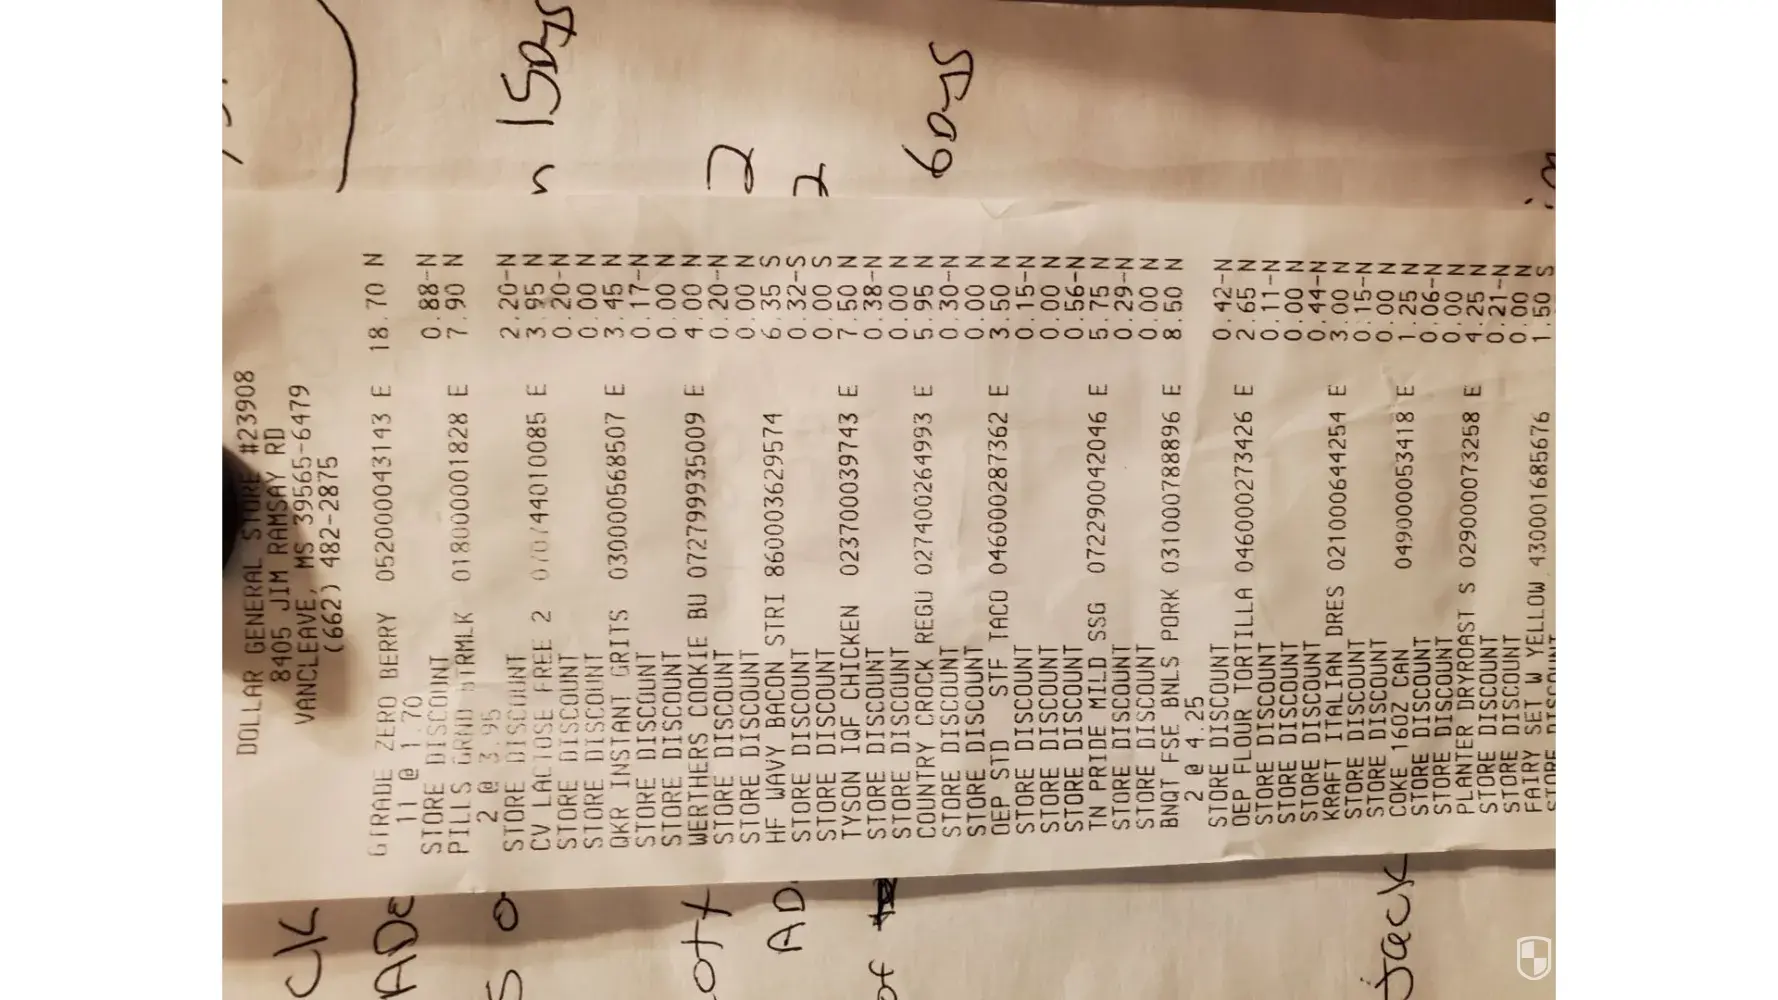 DOLLAR GENERAL STORE #23908
8405 JIM RAMSAY RD
VANCLEAVE, MS 39565-6479
(662) 482-2875
GTRADE ZERO BERRY 052000043143 E 18.70 N
11 @ 1.70
STORE DISCOUNT 0.88-N
PILLS GRND STRMLK 018000001828 E 7.90 N
2 @ 3.95
STORE DISCOUNT 2.20-N
CV LACTOSE FREE 2 070744010085 E 3.95 N
STORE DISCOUNT 0.20-N
STORE DISCOUNT 0.00 N
QKR INSTANT GRITS 030000568507 E 3.45 N
STORE DISCOUNT 0.17-N
STORE DISCOUNT 0.00 N
WERTHERS COOKIE BU 072799935009 E 4.00 N
STORE DISCOUNT 0.20-N
STORE DISCOUNT 0.00 N
HF WAVY BACON STRI 860003629574 6.35 S
STORE DISCOUNT 0.32-S
STORE DISCOUNT 0.00 S
TYSON IQF CHICKEN 023700039743 E 7.50 N
STORE DISCOUNT 0.38-N
STORE DISCOUNT 0.00 N
COUNTRY CROCK REGU 027400264993 E 5.95 N
STORE DISCOUNT 0.30-N
STORE DISCOUNT 0.00 N
OEP STD STF TACO 046000287362 E 3.50 N
STORE DISCOUNT 0.15-N
STORE DISCOUNT 0.00 N
STORE DISCOUNT 0.56-N
TN PRIDE MILD SSG 072290042046 E 5.75 N
STORE DISCOUNT 0.29-N
STORE DISCOUNT 0.00 N
BNQT FSE BNLS PORK 031000788896 E 8.50 N
2 @ 4.25
STORE DISCOUNT 0.42-N
OEP FLOUR TORTILLA 046000273426 E 2.65 N
STORE DISCOUNT 0.11-N
STORE DISCOUNT 0.00 N
STORE DISCOUNT 0.44-N
KRAFT ITALIAN DRES 021000644254 E 3.00 N
STORE DISCOUNT 0.15-N
STORE DISCOUNT 0.00 N
COKE 16OZ CAN 049000053418 E 1.25 N
STORE DISCOUNT 0.06-N
STORE DISCOUNT 0.00 N
PLANTER DRYROAST S 029000073258 E 4.25 N
STORE DISCOUNT 0.21-N
STORE DISCOUNT 0.00 N
FAIRY SET W YELLOW 430001685676 1.50 S
STORE DISCOUNT
CK
ADe
S o
n 15 Days
oft
2
AD
2
of
6 Days
jack
in